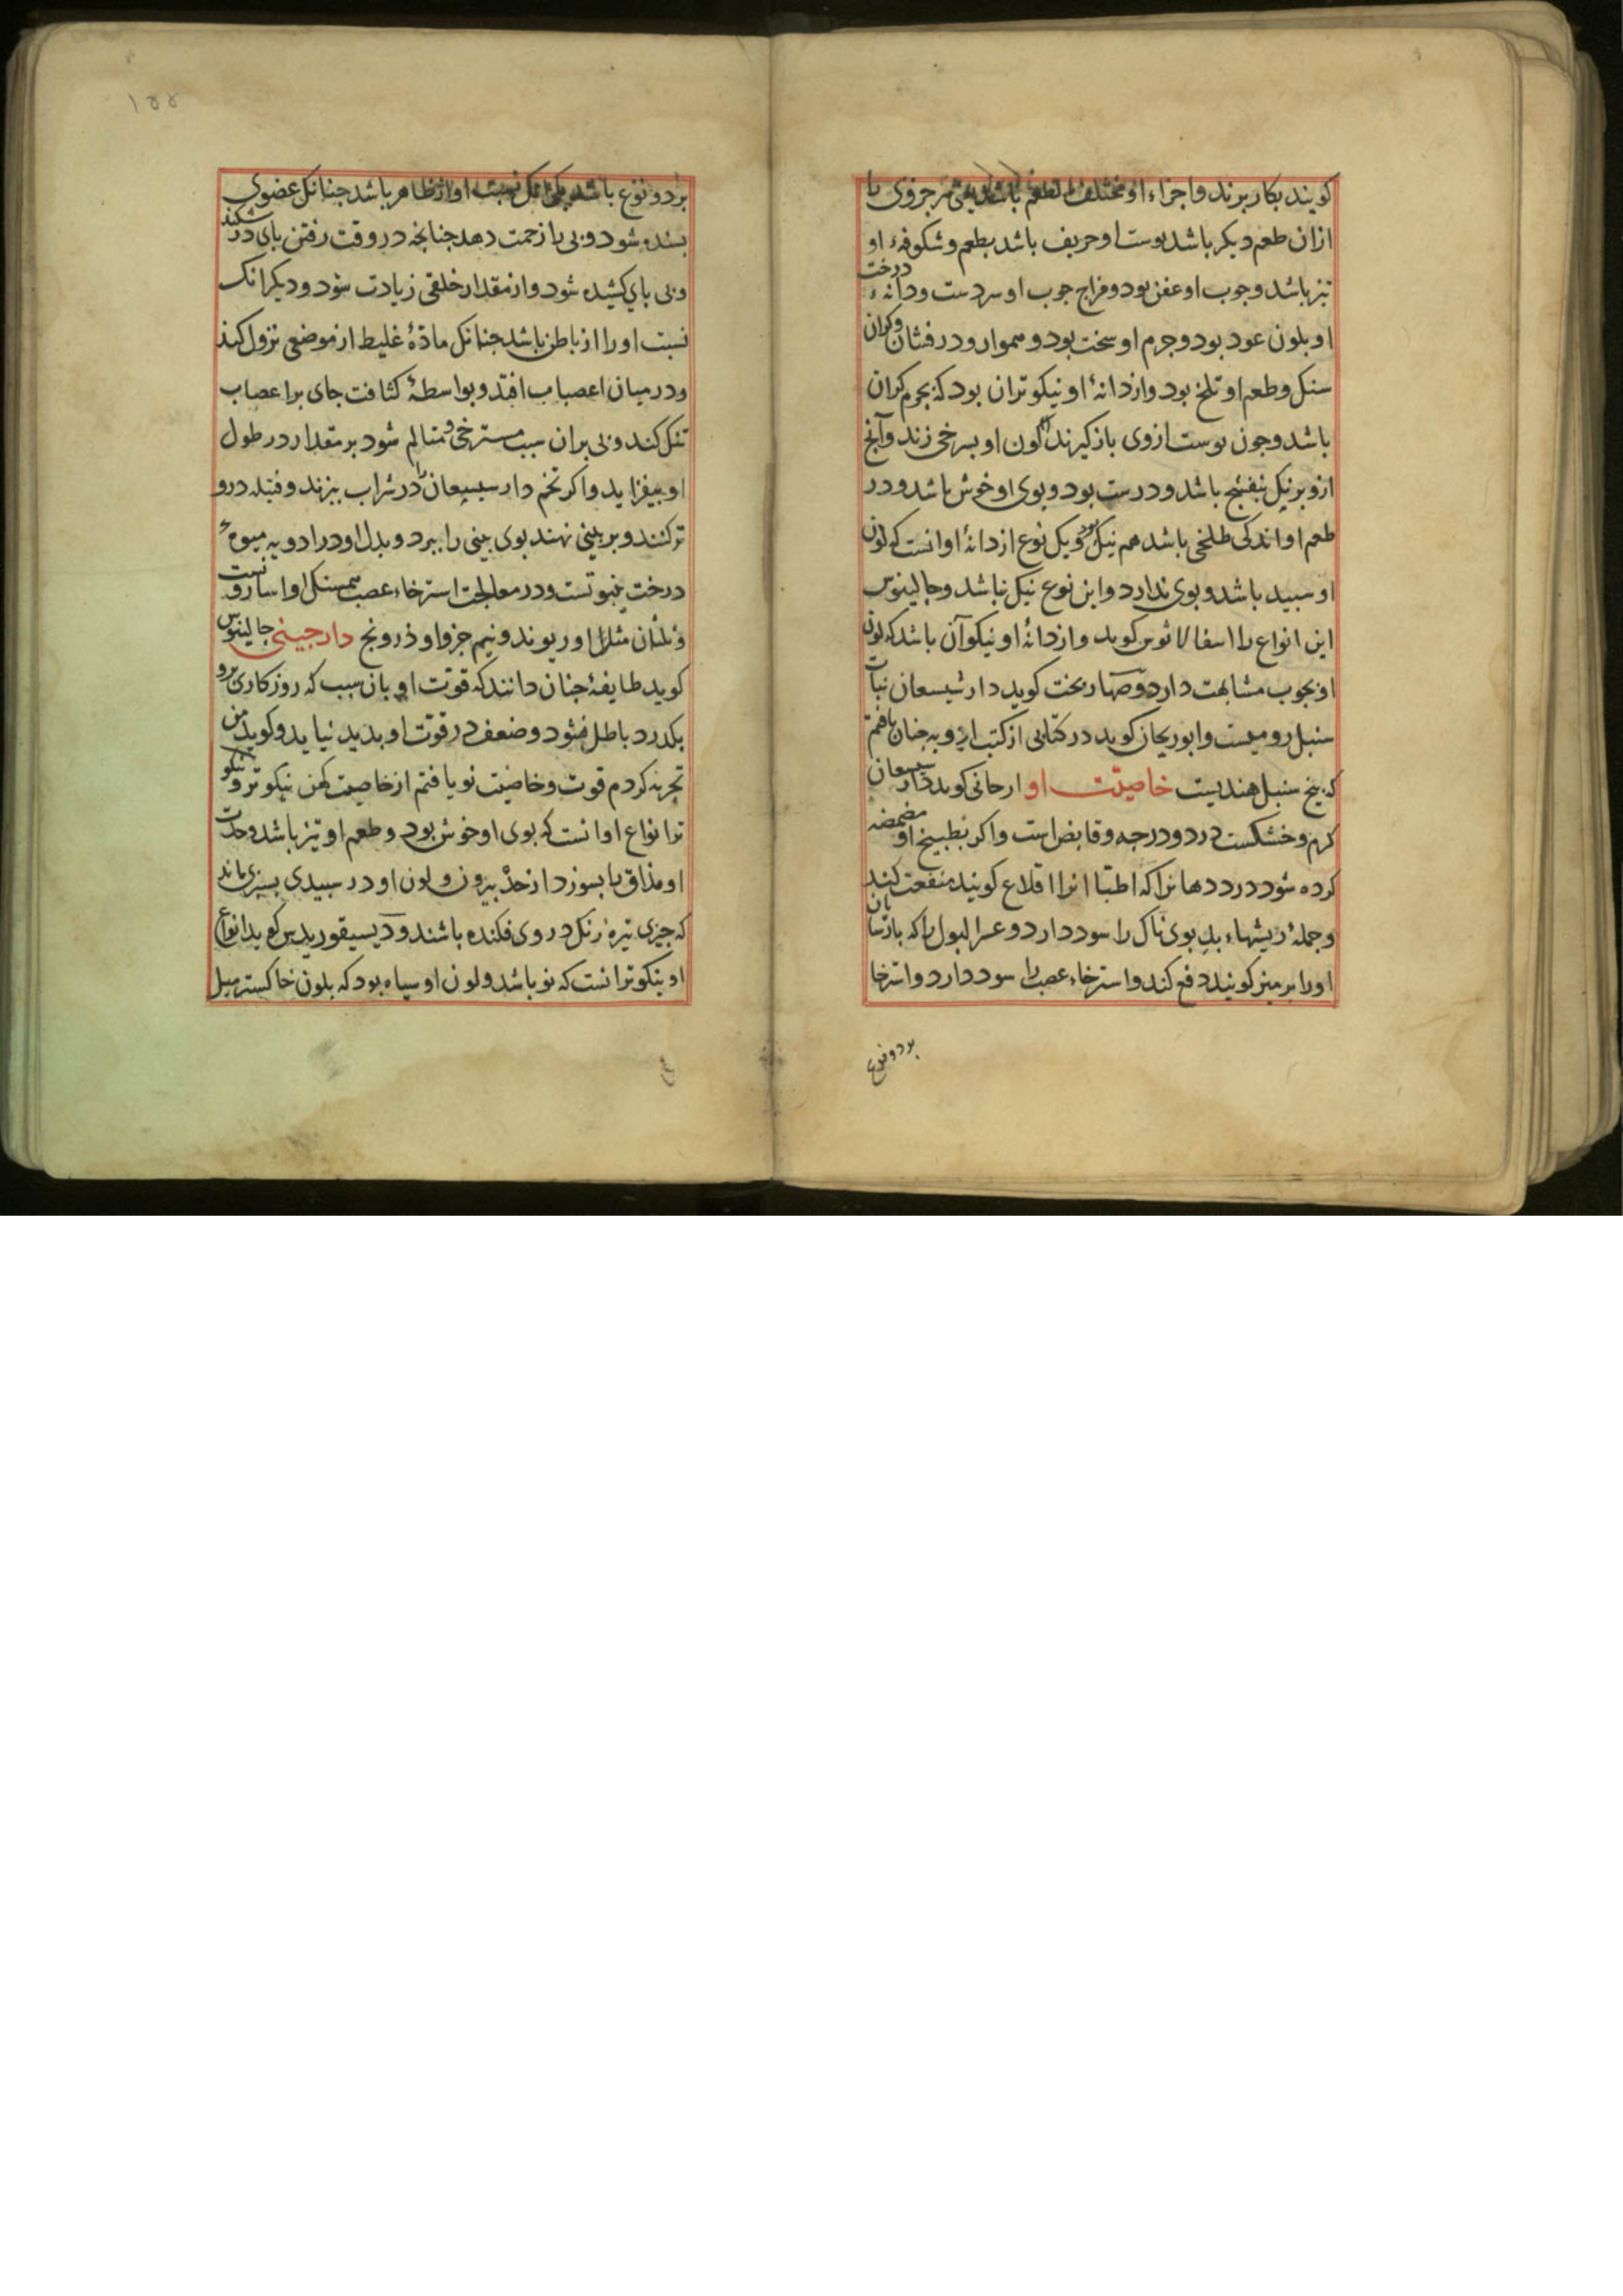 کویند بکار برند و اجزاء او مختلف الطعم باشد یعنی هر جزوی را
ازان طعم دیکر باشد پوست او حریف باشد بطعم و شکوفهء او
تیز باشد و چوب او عفن بود و مزاج چوب او سردست و دانهء درخت
او بلون عود بود و جرم او سخت بود و هموار و درفشان و کران
سنک و طعم او تلخ بود و از دانهٔ او نیکوتر ان بود که بجرم کران
باشد و چون پوست ازوی باز کیرند لون او بسرخی زند و آنچ
ازو برنک بنفسج باشد و درست بود و بوی او خوش باشد و در
طعم او اندکی طلخی باشد هم نیک بود و یک نوع از دانهٔ او انست که لون
او سبید باشد و بوی ندارد و این نوع نیک نباشد و جالینوس
این انواع را اسفالاثوس کوید و از دانهٔ او نیکو آن باشد که لون
او بچوب مشابهت دارد و صهاربخت کوید دارشیسعان نبات
سنبل رومیست و ابوریحان کوید در کتابی از کتب ادویه چنان یافتم
که بیخ سنبل هندیست خاصیّت او ارجانی کوید دارسیسعان
کرم و خشکست در دو درجه و قابض است و اکر بطبیخ او مضمضه
کرده شود درد دهانرا که اطبّا انرا اقلاع کویند منفعت کند
و جملهٔ ریشهاء بد بوی ناک را سود دارد و عسر البول را که بارسیان
او را برمیز کویند دفع کند و استرخاء عصب را سود دارد و استرخا
بر دو نوع
۱۵۵
بر دو نوع باشد یکی انک نسبت او از ظاهر باشد چنانک عضوی
بسته شود و پی را زحمت دهد چنانچه در وقت رفتن بای در شکند
و پی بای کشیده شود و از مقدار خلقی زیادت شود و دیکر انک
نسبت او را از باطن باشد چنانک مادّهٔ غلیظ از موضعی نزول کند
و در میان اعصاب افتد و بواسطهٔ کثافت جای بر اعصاب
تنک کند و پی بران سبب مسترخی و متالم شود بر مقدار در طول
او بیفزاید و اکر تخم دارسیسعان را در شراب ببزند و فتیله درو
تر کنند و بر بینی نهند بوی بینی را ببرد و بدل او در ادویه میوهٔ
درخت ینبوتست و در معالجت استرخاء عصب همسنک او اسارونست
و ثلثان مثل او ریوند و نیم جزو او درونج دارچینی جالینوس
کوید طایفهٔ چنان دانند که قوّت او بان سبب که روزکاری برو
بکذرد باطل نشود و ضعف در قوّت او بدید نیاید و کوید من
تجربه کردم قوت و خاصیت نو یافتم از خاصیت کهن نیکوتر و نیکو
تر انواع او انست که بوی او خوش بود و طعم او تیز باشد و حدّت
او مذاق را بسوزد از حدّ بیرون و لون او در سبیدی بسبزی ماند
که چیزی تیره رنک در وی فکنده باشند و دیسیقوریدس کوید انواع
او نیکوتر انست که نو باشد و لون او سیاه بود که بلون خاکستر میل